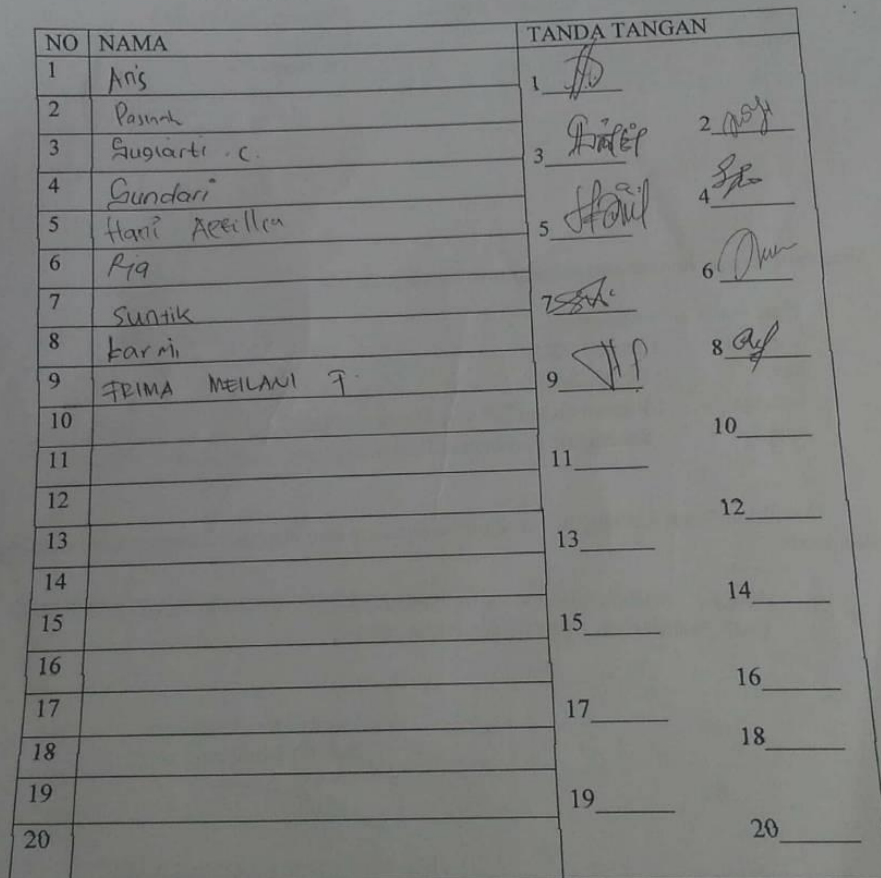 NO NAMA TANDA TANGAN
1 Aris 1
2 Pasinah 2
3 Sugiarti . C. 3
4 Sundari 4
5 Hani 5
6 Ria 6
7 Suntik 7
8 Karmi 8
9 FRIMA MEILANI F. 9
10 10
11 11
12 12
13 13
14 14
15 15
16 16
17 17
18 18
19 19
20 20